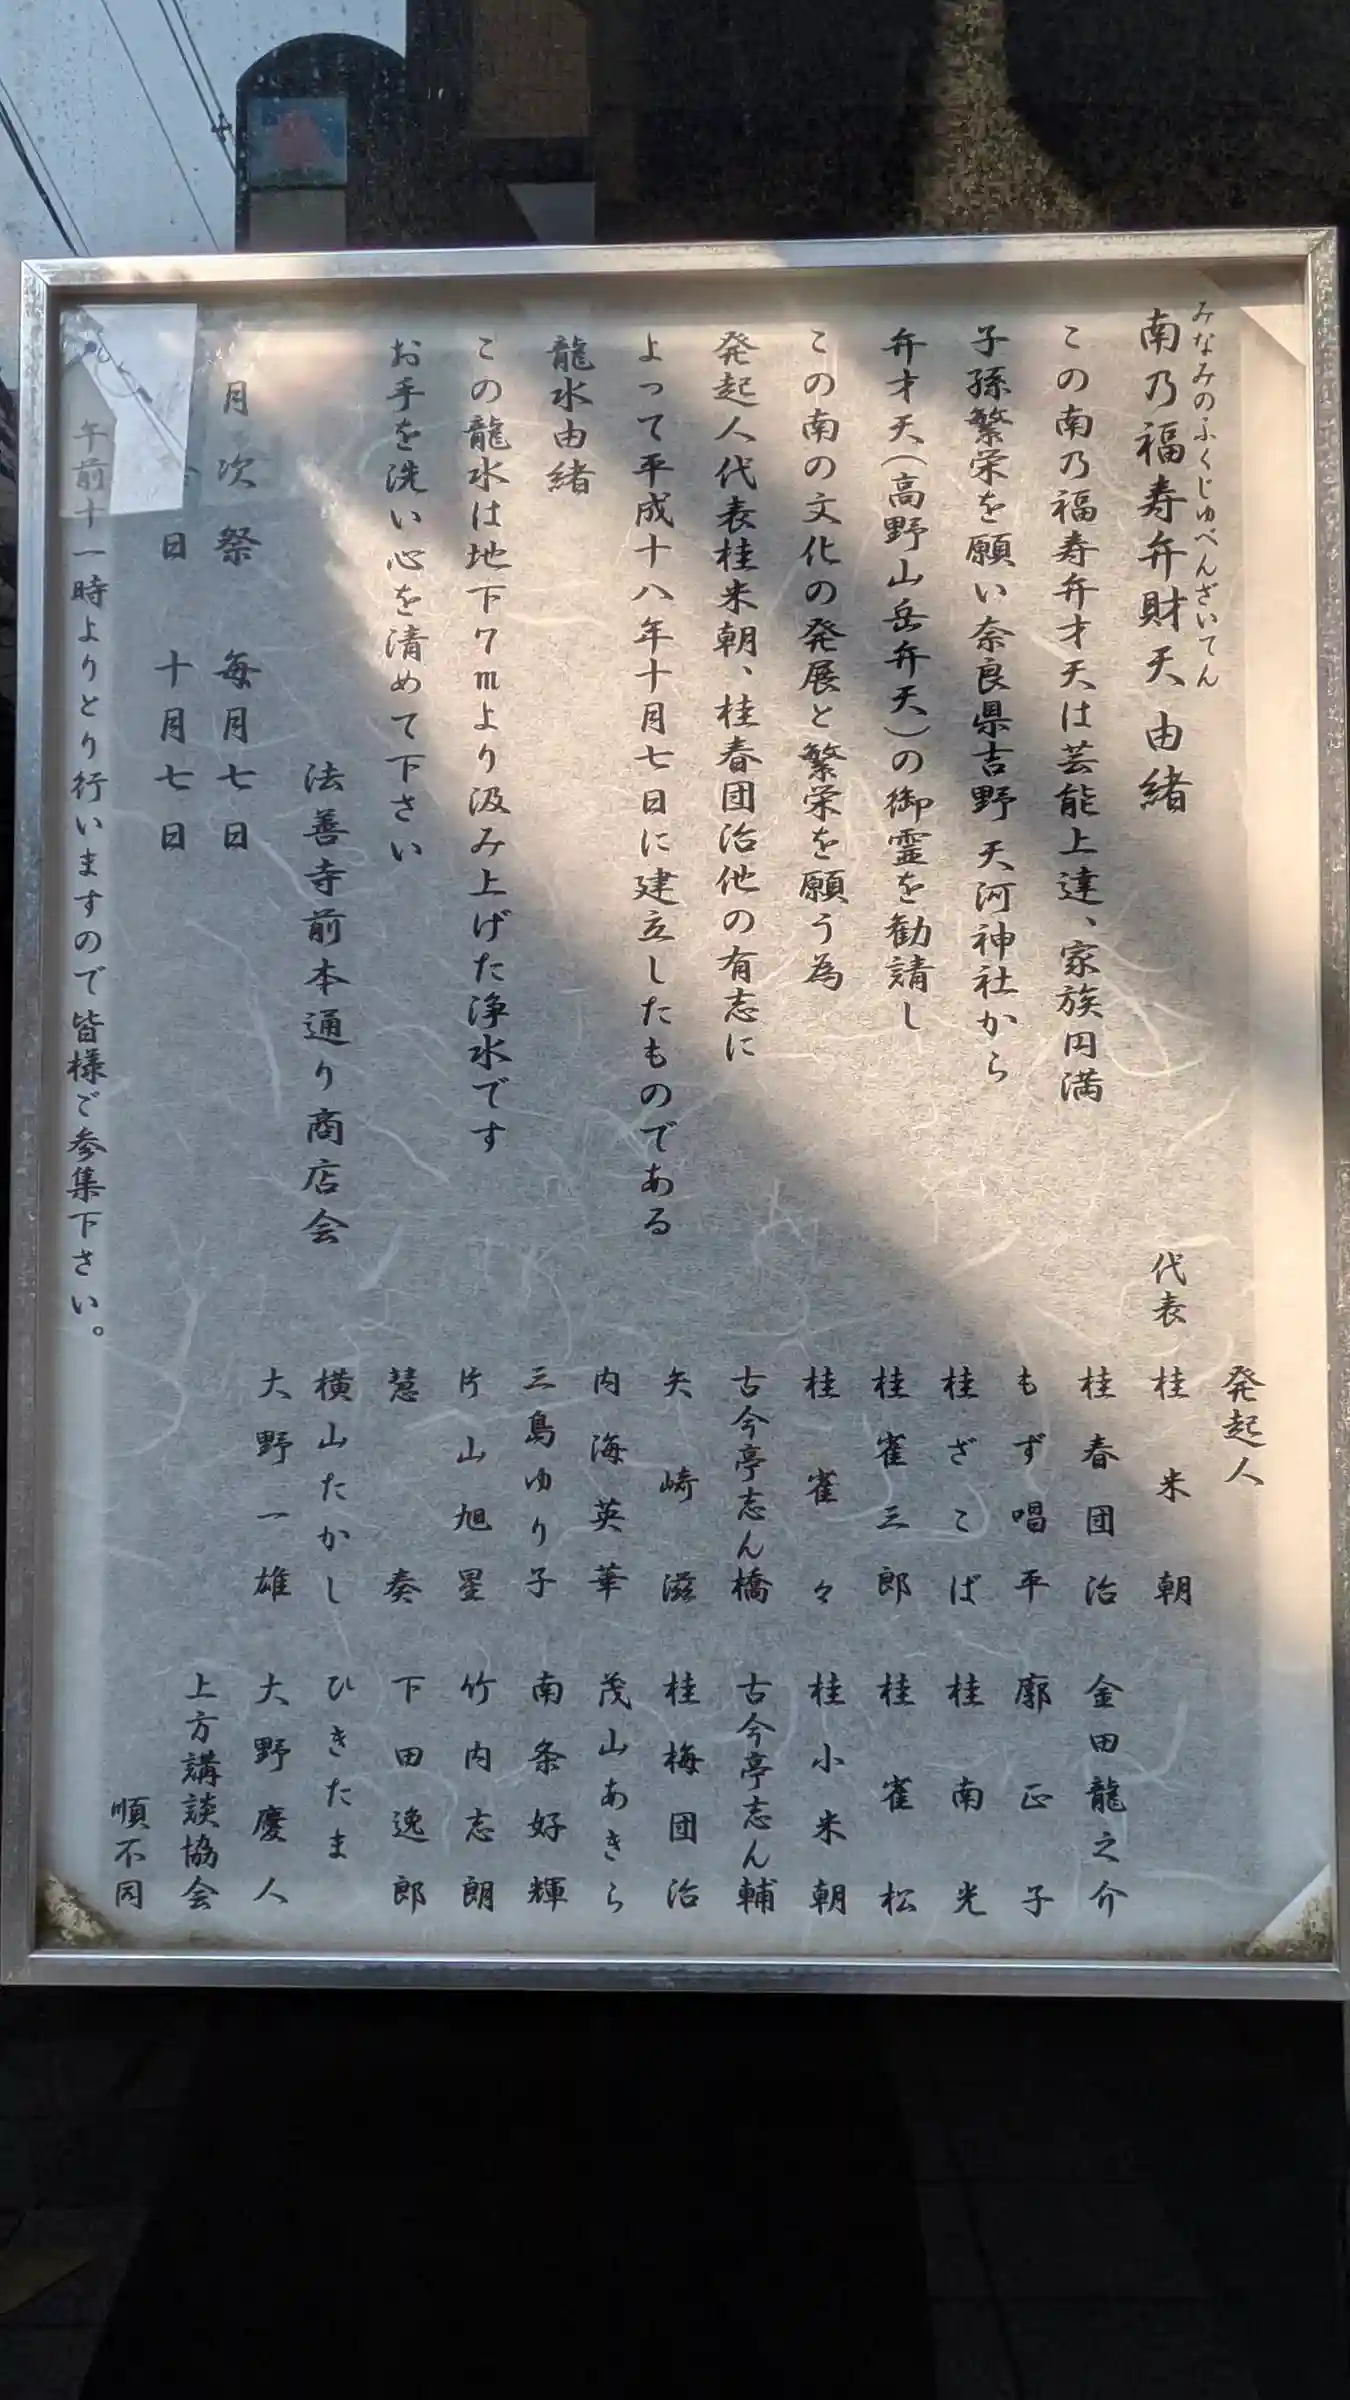 みなみのふくじゅべんざいてん
南乃福寿弁財天 由緒
この南乃福寿弁才天は芸能上達、家族円満
子孫繁栄を願い奈良県吉野 天河神社から
弁才天(高野山岳弁天)の御霊を勧請し
この南の文化の発展と繁栄を願う為
発起人代表桂米朝、桂春団治他の有志に
よって平成十八年十月七日に建立したものである
龍水由緒
この龍水は地下7mより汲み上げた浄水です
お手を洗い心を清めて下さい
法善寺前本通り商店会
月次祭 毎月七日
日 十月七日
午前十一時よりとり行いますので皆様ご参集下さい。
発起人
代表 桂米朝
桂春団治 金田龍之介
もず唱平 廓正子
桂ざこば 桂南光
桂雀三郎 桂雀松
桂雀々 桂小米朝
古今亭志ん橋 古今亭志ん輔
矢崎滋 桂梅団治
内海英華 茂山あきら
三島ゆり子 南条好輝
片山旭星 竹内志朗
慧奏 下田逸郎
横山たかし ひきたま
大野一雄 大野慶人
上方講談協会
順不同